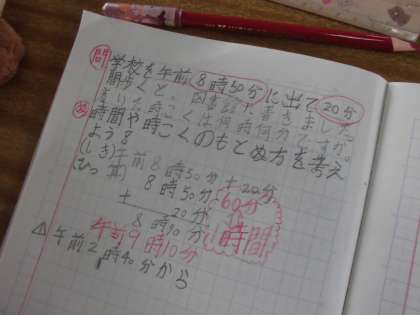 問 学校を午前8時50分に出て20分
間歩くと、図書館に着きました。
着いた時こくは何時何分ですか。
め 時間や時こくのもとめ方を考え
よう。
(しき)午前8時50分+20分
(ひっ算) 8時50分
+ 20分 60分
8時10分 1時間
午前9時10分
午前2時40分から